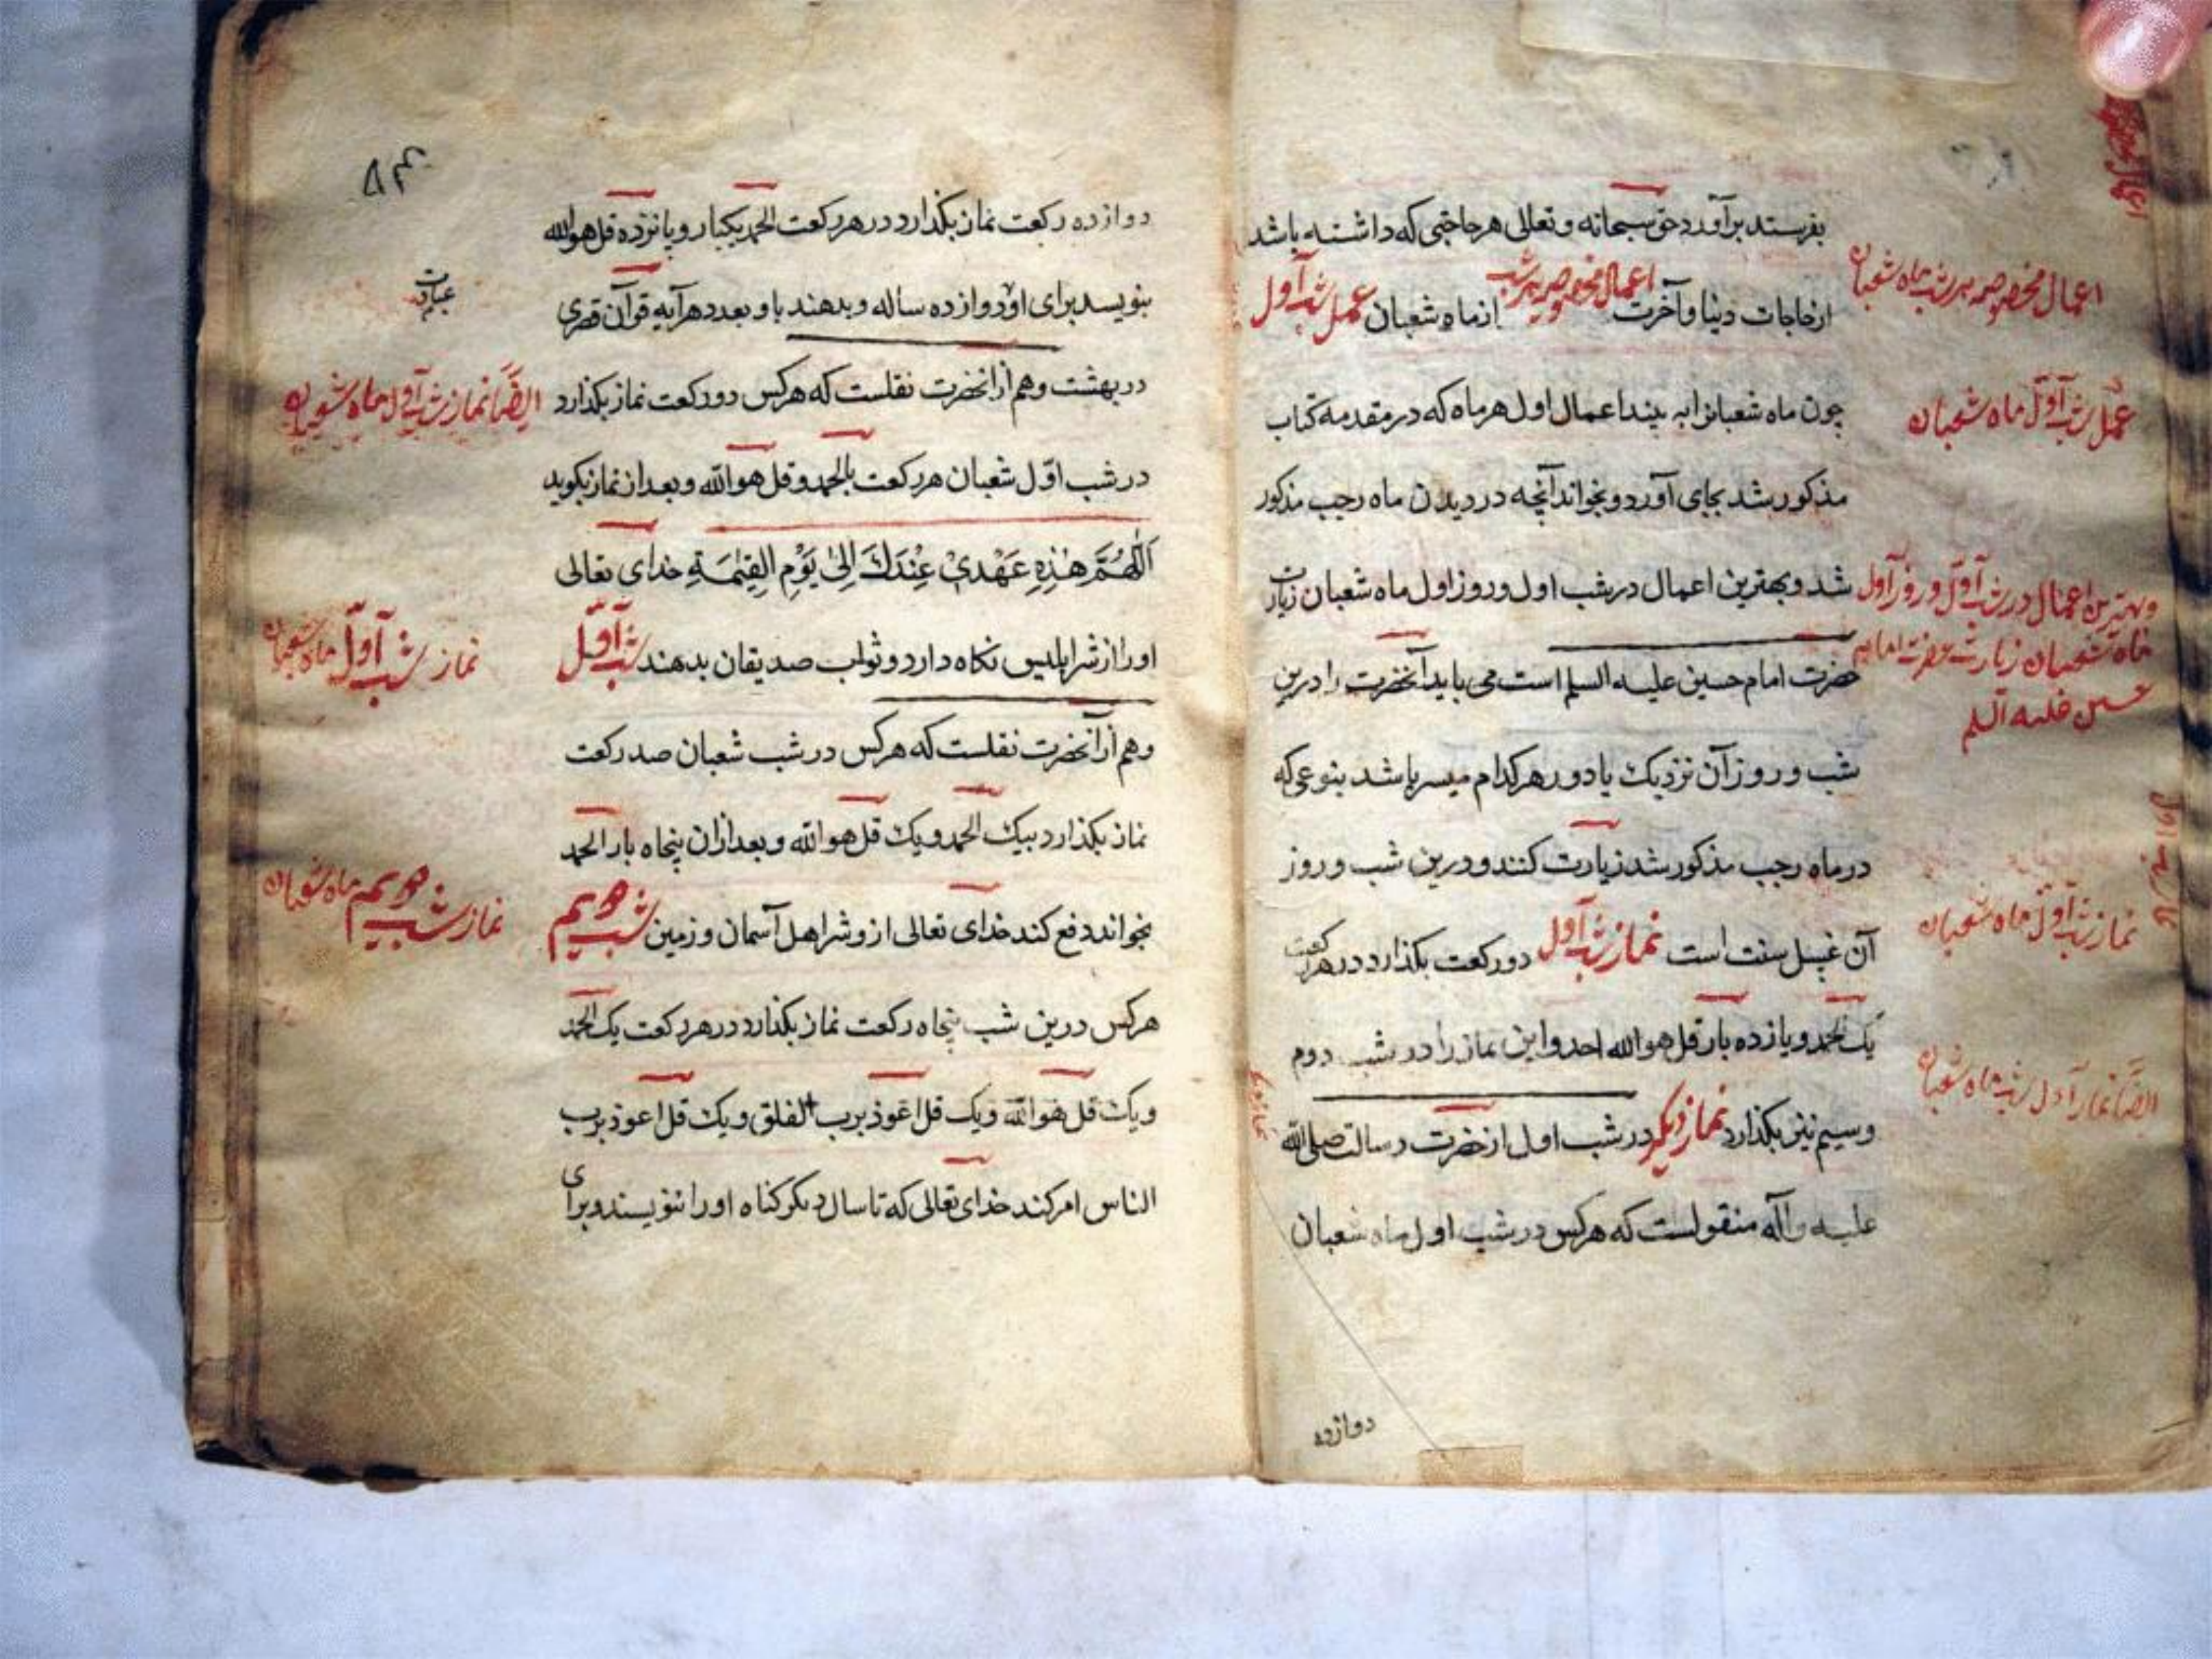 بفرستد برآورد حق سبحانه و تعالی هر حاجتی که داشته باشد
از حاجات دنیا و آخرت اعمال مخصوصه هر شب از ماه شعبان عمل شب اول
اعمال مخصوصه هر شب ماه شعبان
چون ماه شعبانرا به بیند اعمال اول هر ماه که در مقدمه کتاب
عمل شب اول ماه شعبان
مذکور شد بجای آورد و بخواند آنچه در دیدن ماه رجب مذکور
شد و بهترین اعمال در شب اول و روز اول ماه شعبان زیارت
و بهترین اعمال در شب اول و روز اول
ماه شعبان زیارت حضرت امام
حسین علیه السلم
حضرت امام حسین علیه السلم است می باید آنحضرت را درین
شب و روز آن نزدیک یا دور هر کدام میسر باشد بنوعی که
در ماه رجب مذکور شد زیارت کنند و درین شب و روز
آن غسل سنت است نماز شب اول دو رکعت بکذارد در هر رکعت
نماز شب اول ماه شعبان
یک الحمد و یازده بار قل هو الله احد و این نماز را در شب دوم
وسیم نیز بکذارد نماز دیکر در شب اول از حضرت رسالت صلی الله
ایضا نماز اول شب ماه شعبان
علیه و آله منقولست که هرکس در شب اول ماه شعبان
دوازده
دوازده رکعت نماز بکذارد در هر رکعت الحمد یکبار و پانزده قل هو الله
بنویسد برای او دوازده ساله و بدهند باو بعدد هر آیه قرآن قصری
عبادت
در بهشت و هم از آنحضرت نقلست که هرکس دو رکعت نماز بکذارد
ایضا نماز شب اول ماه شعبان
در شب اول شعبان هر رکعت بالحمد و قل هو الله و بعد از نماز بکوید
اَللّٰهُمَّ هٰذِهِ عَهْدِیْ عِنْدَكَ اِلیٰ یَوْمِ الْقِیٰمَةِ خدای تعالی
او را از شر ابلیس نکاه دارد و ثواب صدیقان بدهند شب اول
نماز شب اول ماه شعبان
و هم از آنحضرت نقلست که هرکس در شب شعبان صد رکعت
نماز بکذارد بیک الحمد و یک قل هو الله و بعد از ان پنجاه بار الحمد
بخواند دفع کند خدای تعالی ازو شر اهل آسمان و زمین شب دویم
نماز شب دویم ماه شعبان
هرکس درین شب پنجاه رکعت نماز بکذارد در هر رکعت یک الحمد
و یک قل هو الله و یک قل اعوذ برب الفلق و یک قل اعوذ برب
الناس امر کند خدای تعالی که تا سال دیکر کناه او را ننویسند و برای